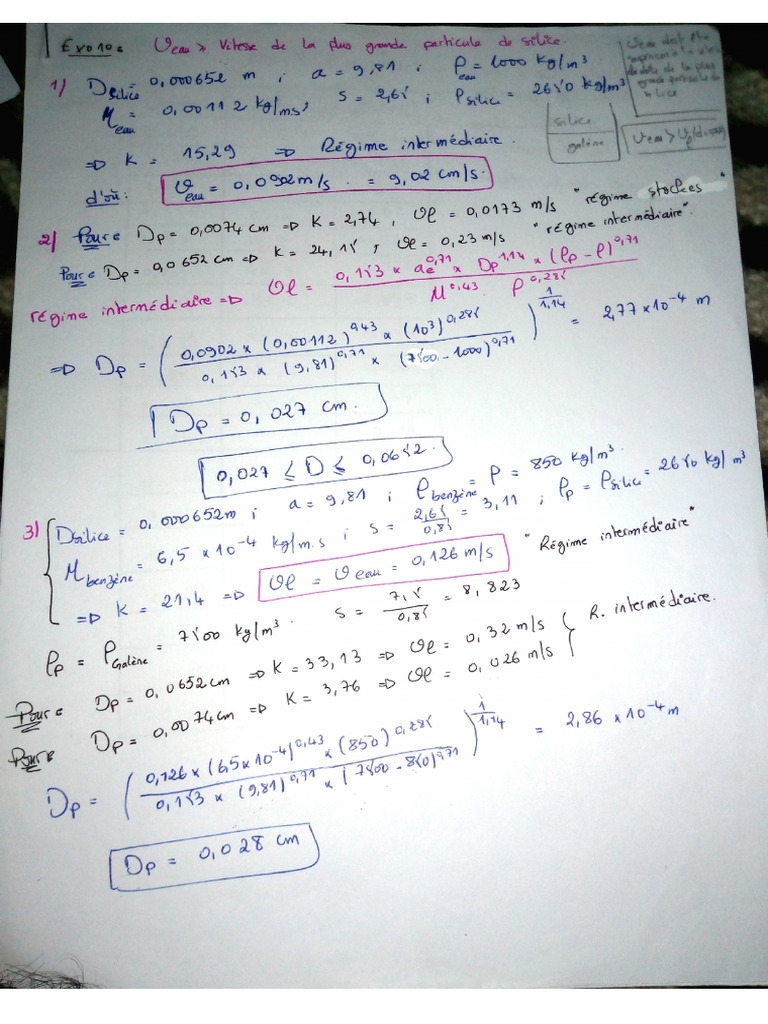 Exo 10 : Veau > Vitesse de la plus grande particule de silice.
1) Dsilice = 0,000652 m ; a = 9,81 ; ρeau = 1000 kg/m³
Meau = 0,00112 kg/ms ; S = 2,65 ; ρsilice = 2650 kg/m³
silice
galène
⇒ K = 15,29 ⇒ Régime intermédiaire.
d'où : Veau = 0,0902 m/s = 9,02 cm/s.
2) Pour : Dp = 0,0074 cm ⇒ K = 2,74 , Vl = 0,0173 m/s "régime stockes"
Pour : Dp = 0,0652 cm ⇒ K = 24,15 , Vl = 0,23 m/s "régime intermédiaire".
régime intermédiaire ⇒ Vl = 0,153 × ae^0,71 × Dp^1,14 × (ρp - ρ)^0,71 / M^0,43 ρ^0,285
⇒ Dp = (0,0902 × (0,00112)^0,43 × (10³)^0,285 / 0,153 × (9,81)^0,71 × (7500 - 1000)^0,71)^1/1,14 = 2,77×10⁻⁴ m
Dp = 0,027 cm.
0,027 ≤ D ≤ 0,0652.
3) Dsilice = 0,000652m ; a = 9,81 ; ρbenzène = ρ = 850 kg/m³.
Mbenzène = 6,5 ×10⁻⁴ kg/m.s ; S = 2,65/0,85 = 3,11 ; ρp = ρsilice = 2650 kg/m³
⇒ K = 21,4 ⇒ Vl = Veau = 0,126 m/s "Régime intermédiaire"
ρp = ρGalène = 7500 kg/m³. S = 7,5/0,85 = 8,823
Pour : Dp = 0,0652cm ⇒ K = 33,13 ⇒ Vl = 0,32 m/s
Pour : Dp = 0,0074cm ⇒ K = 3,76 ⇒ Vl = 0,026 m/s } R. intermédiaire.
Dp = (0,126 × (6,5×10⁻⁴)^0,43 × (850)^0,285 / 0,153 × (9,81)^0,71 × (7500 - 850)^0,71)^1/1,14 = 2,86 ×10⁻⁴ m
Dp = 0,028 cm